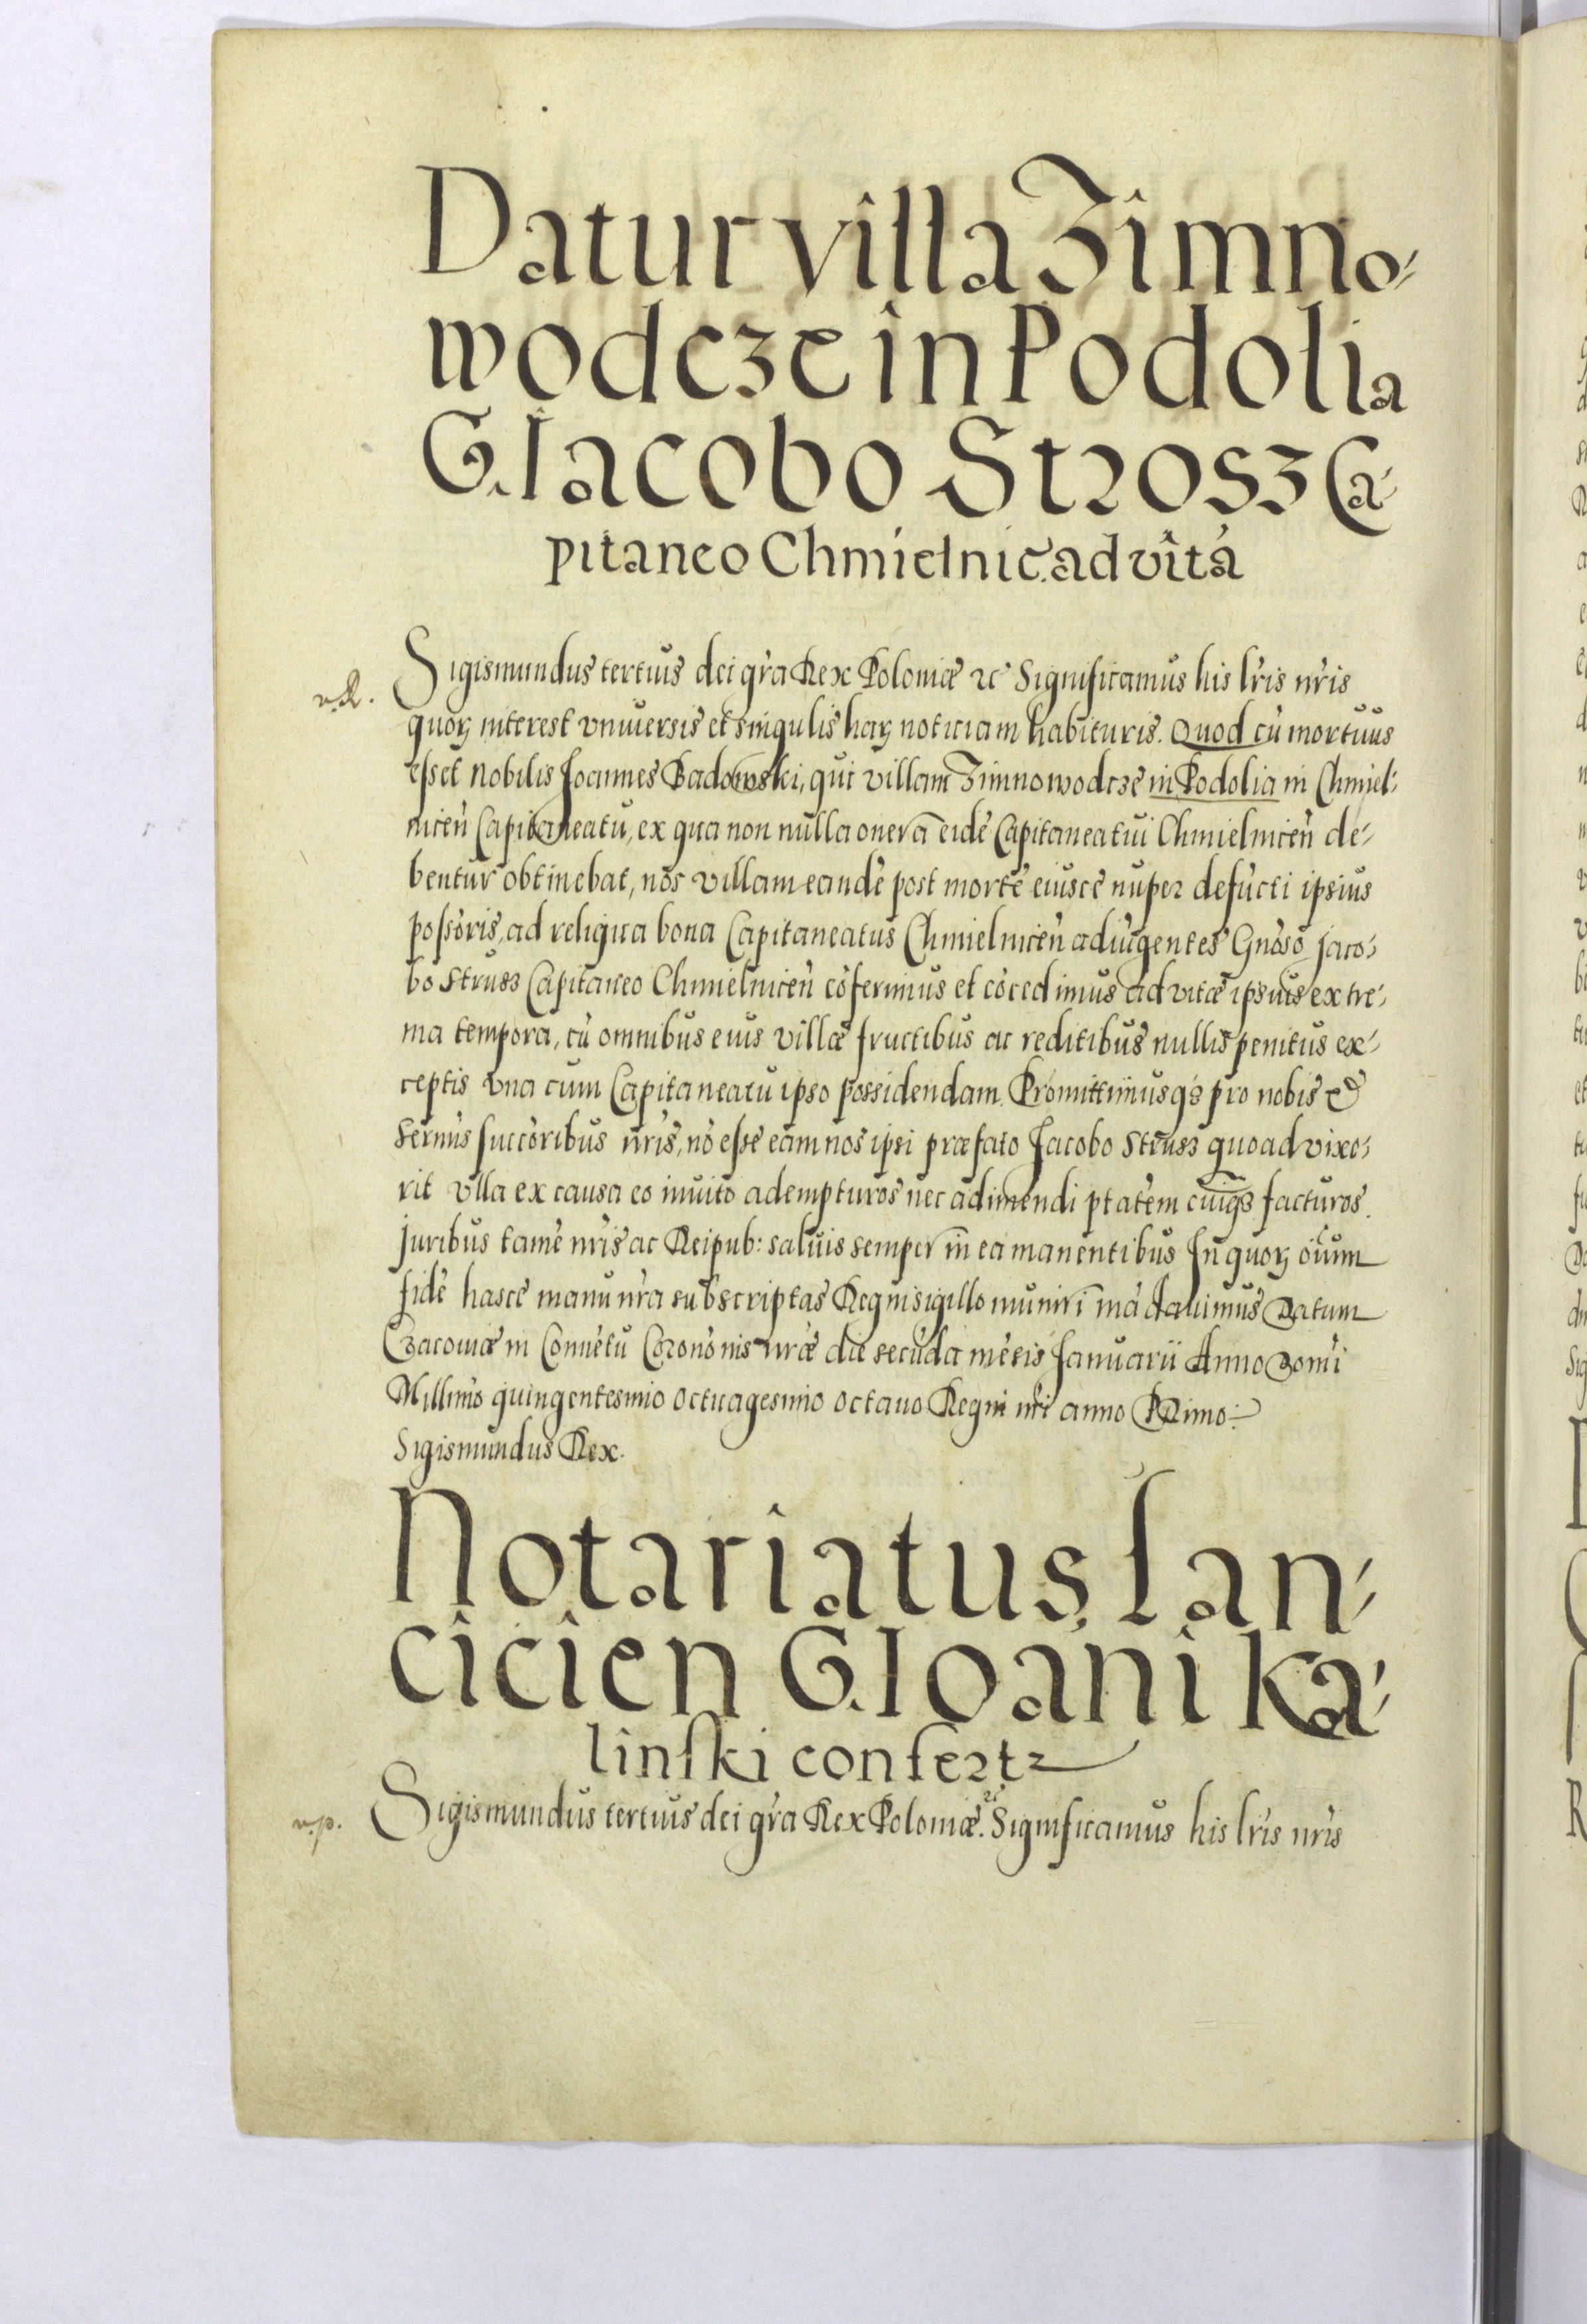 Datur villa Zimno-
wodcze in Podolia
G. Iacobo Strosz Ca-
pitaneo Chmielnic̃. ad vitã
v.R.
Sigismundus tertius dei gr̃a Rex Poloniæ ⁊c̃ Significamus his lr̃is nr̃is
quoꝝ interest vniuersis et singulis haꝝ noticiam habituris. Quod cũ mortuus
esset Nobilis Joannes Badowski, qui villam Zimnowodcze in Podolia in Chmiel-
niceñ Capitaneatu, ex qua non nulla onera eidẽ Capitaneatui Chmielniceñ de-
bentur obtinebat, nos villam eandẽ post mortẽ eiuscẽ nuper defũcti ipsius
poss̃oris, ad reliqua bona Capitaneatus Chmielniceñ adiũgentes Gnõso Jaco-
bo Strusz Capitaneo Chmielniceñ cõferimus et cõcedimus ad vitæ ipsius extre-
ma tempora, cũ omnibus eius villæ fructibus ac reditibus nullis penitus ex-
ceptis vna cum Capitaneatu ipso possidendam. Promittimusqꝫ pro nobis et
Serm̃is succõribus nr̃is, nõ esse eam nos ipsi præfato Jacobo Strusz quoad vixe-
rit vlla ex causa eo inuito adempturos nec adimendi ptatẽm cuiqꝫ facturos.
Juribus tamẽ nr̃is ac Reipub: saluis semper in ea manentibus In quoꝝ õium
fidẽ hasce manu nr̃a subscriptas Regni sigillo muniri mãdauimus Datum
Cracoviæ in Conuẽtu Coronõnis nr̃æ die secũda mẽsis Januarii Anno Domĩ
Millim̃o quingentesimo octuagesimo octauo Regni nr̃i anno PRimo.
Sigismundus Rex.
Notariatus Lan-
cicien G. Ioãni Ka-
linski confert
v.p.
Sigismundus tertius dei gr̃a Rex Poloniæ. ⁊c̃ Significamus his lr̃is nr̃is